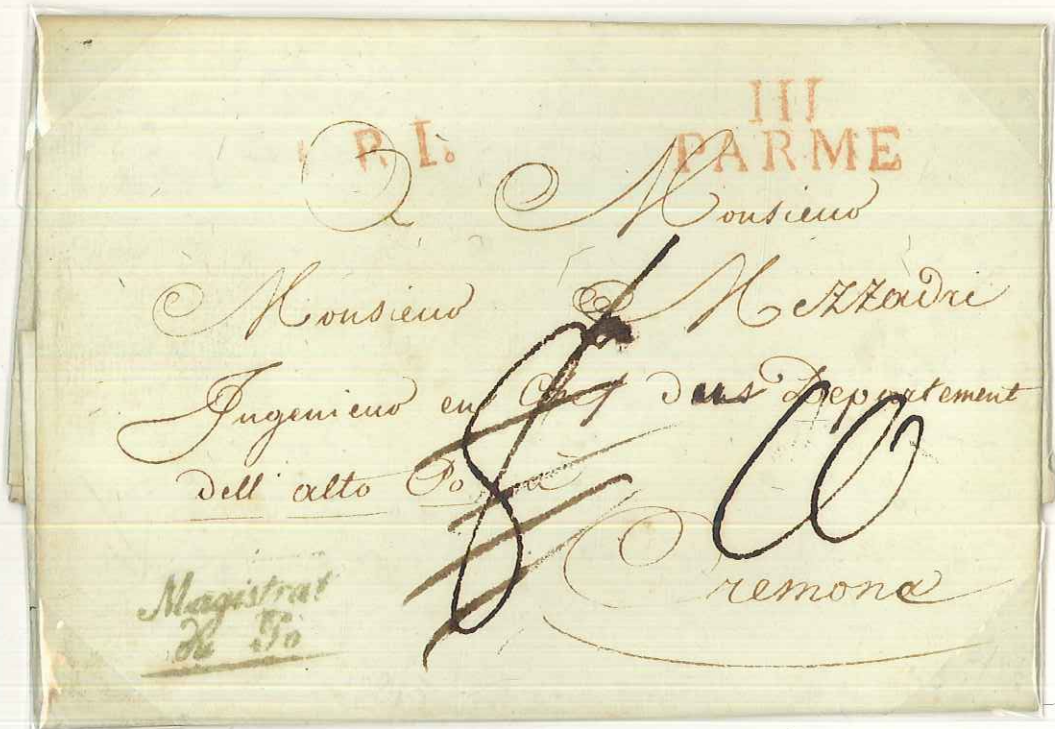 R. I.
III
PARME
A Monsieur
Monsieur Mezzadri
Ingenieur en Chef dans Departement
dell' alto Po à
Cremona
8
60
Magistrat
du Po